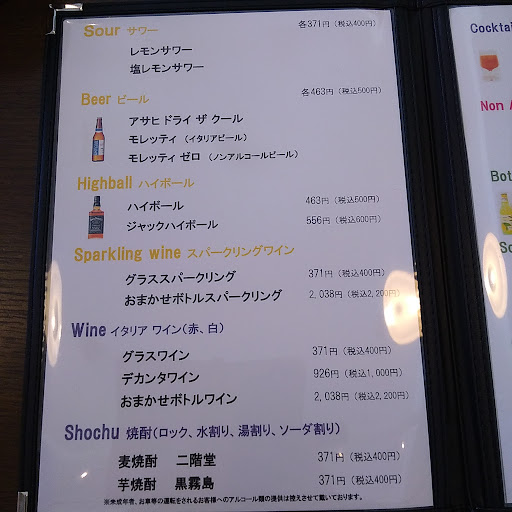 Sour サワー 各371円(税込400円)
レモンサワー
塩レモンサワー
Beer ビール 各463円(税込500円)
アサヒ ドライ ザ クール
モレッティ (イタリアビール)
モレッティ ゼロ (ノンアルコールビール)
Highball ハイボール
ハイボール 463円(税込500円)
ジャックハイボール 556円(税込600円)
Sparkling wine スパークリングワイン
グラススパークリング 371円(税込400円)
おまかせボトルスパークリング 2,038円(税込2,200円)
Wine イタリア ワイン(赤、白)
グラスワイン 371円(税込400円)
デカンタワイン 926円(税込1,000円)
おまかせボトルワイン 2,038円(税込2,200円)
Shochu 焼酎(ロック、水割り、湯割り、ソーダ割り)
麦焼酎 二階堂 371円(税込400円)
芋焼酎 黒霧島 371円(税込400円)
※未成年者、お車等の運転をされるお客様へのアルコール類の提供は控えさせて戴いております。
Cocktai
Non A
Bot
So